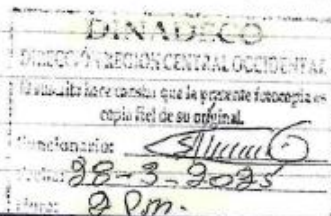 DINADECO
DIRECCIÓN REGION CENTRAL OCCIDENTAL
El suscrito hace constar que la presente fotocopia es
copia fiel de su original.
Funcionario:
Fecha: 28-3-2025
Hora: 2 Pm.